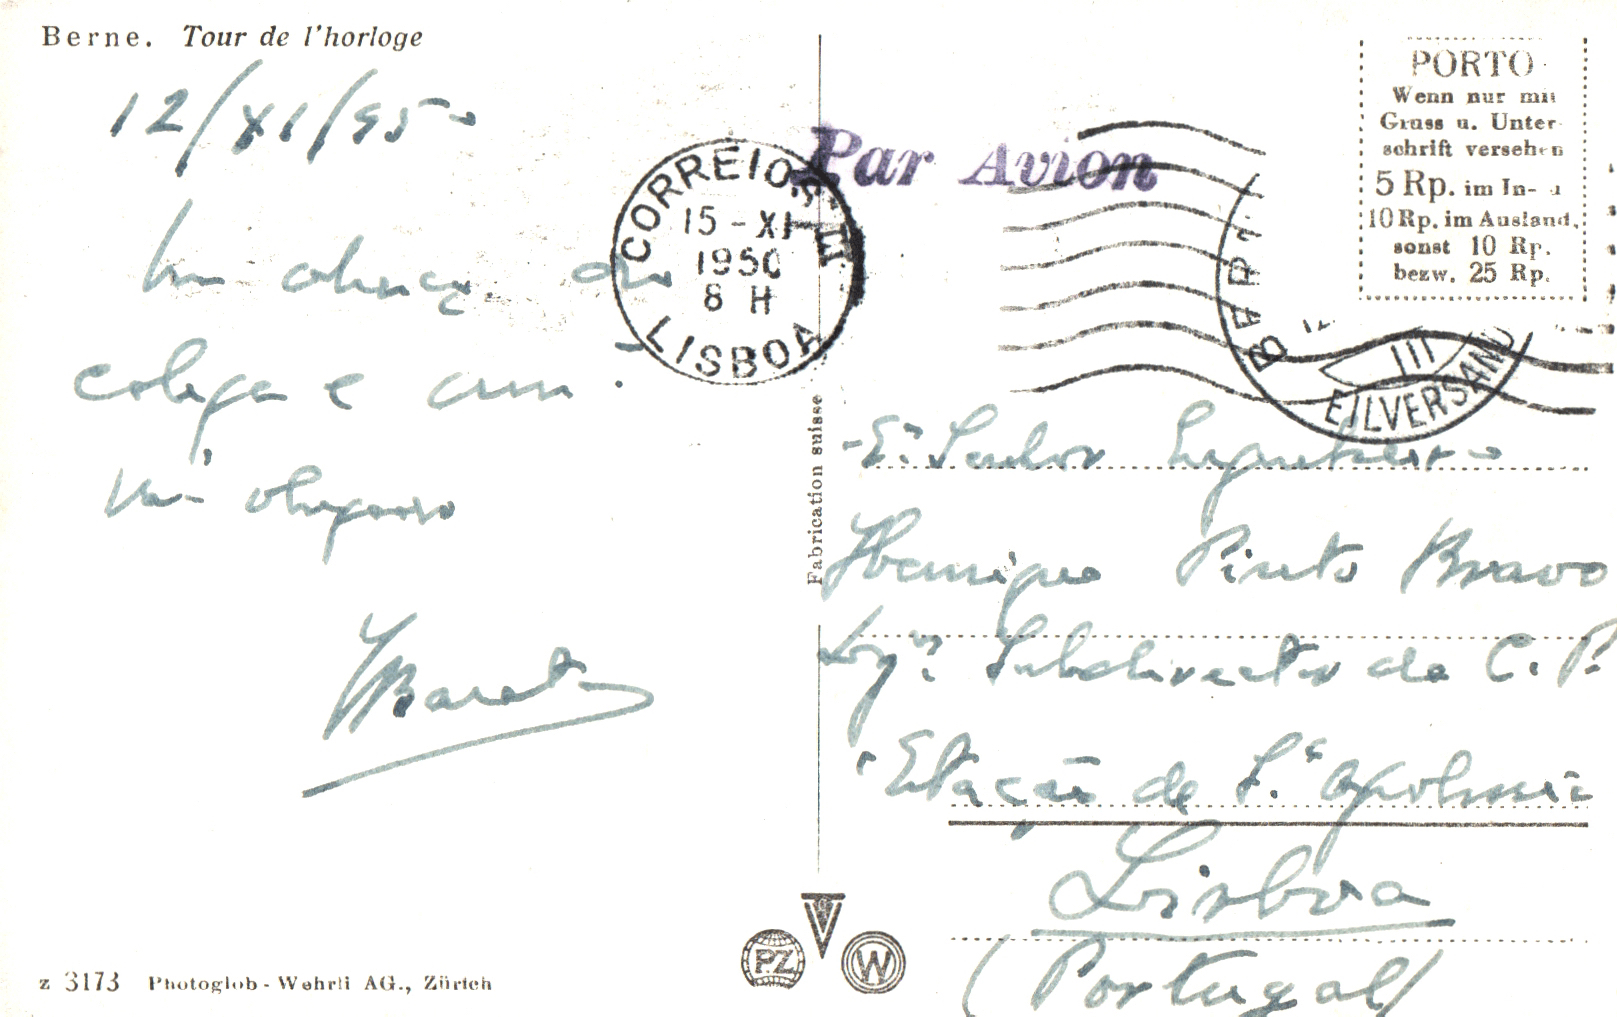 Berne. Tour de l'horloge
12/XI/950
Um abraço do
colega e am.
m.to obrigado
Par Avion
CORREIOS
15-XI
1950
8 H
LISBOA
PORTO
Wenn nur mit
Gruss u. Unter-
schrift versehen
5 Rp. im In-
10 Rp. im Ausland,
sonst 10 Rp.
bezw. 25 Rp.
III
EILVERSAND
Senhor Engenheiro
Henrique Pinto Bravo
Subdirector da C. P.
Estação de S.ta Apolonia
Lisboa
(Portugal)
Fabrication suisse
PZ
W
z 3173 Photoglob-Wehrli AG., Zürich